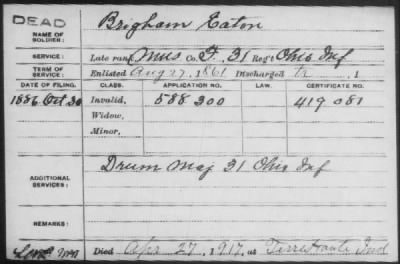 DEAD
NAME OF SOLDIER: Brigham Eaton
SERVICE: Late rank Mus Co. F. 31 Reg't Ohio Inf
TERM OF SERVICE: Enlisted Aug 27, 1861 Discharged
DATE OF FILING. CLASS. APPLICATION NO. LAW. CERTIFICATE NO.
1886 Oct 30 Invalid, 588 300 419 081
Widow,
Minor,
ADDITIONAL SERVICES: Drum Maj 31 Ohio Inf
REMARKS:
Died Apr 27, 1917, at Terre Haute Ind